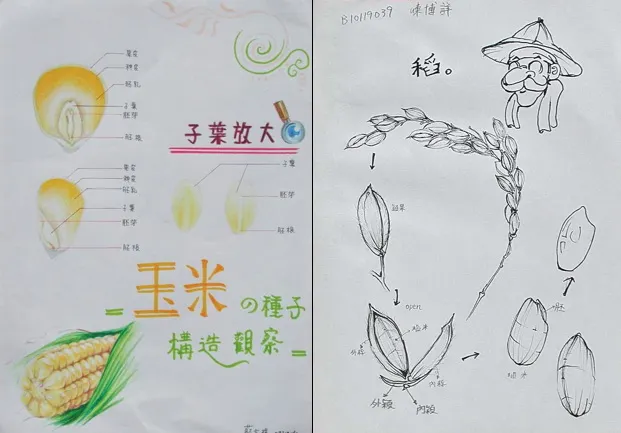 果皮
種皮
胚乳
子葉
胚芽
胚根
子葉放大
果皮
種皮
胚乳
子葉
胚芽
胚根
子葉
胚芽
胚根
玉米の種子
構造觀察
B10119039 陳博詳
稻。
穎果
open
糙米
外稃
內稃
外穎
內穎
胚